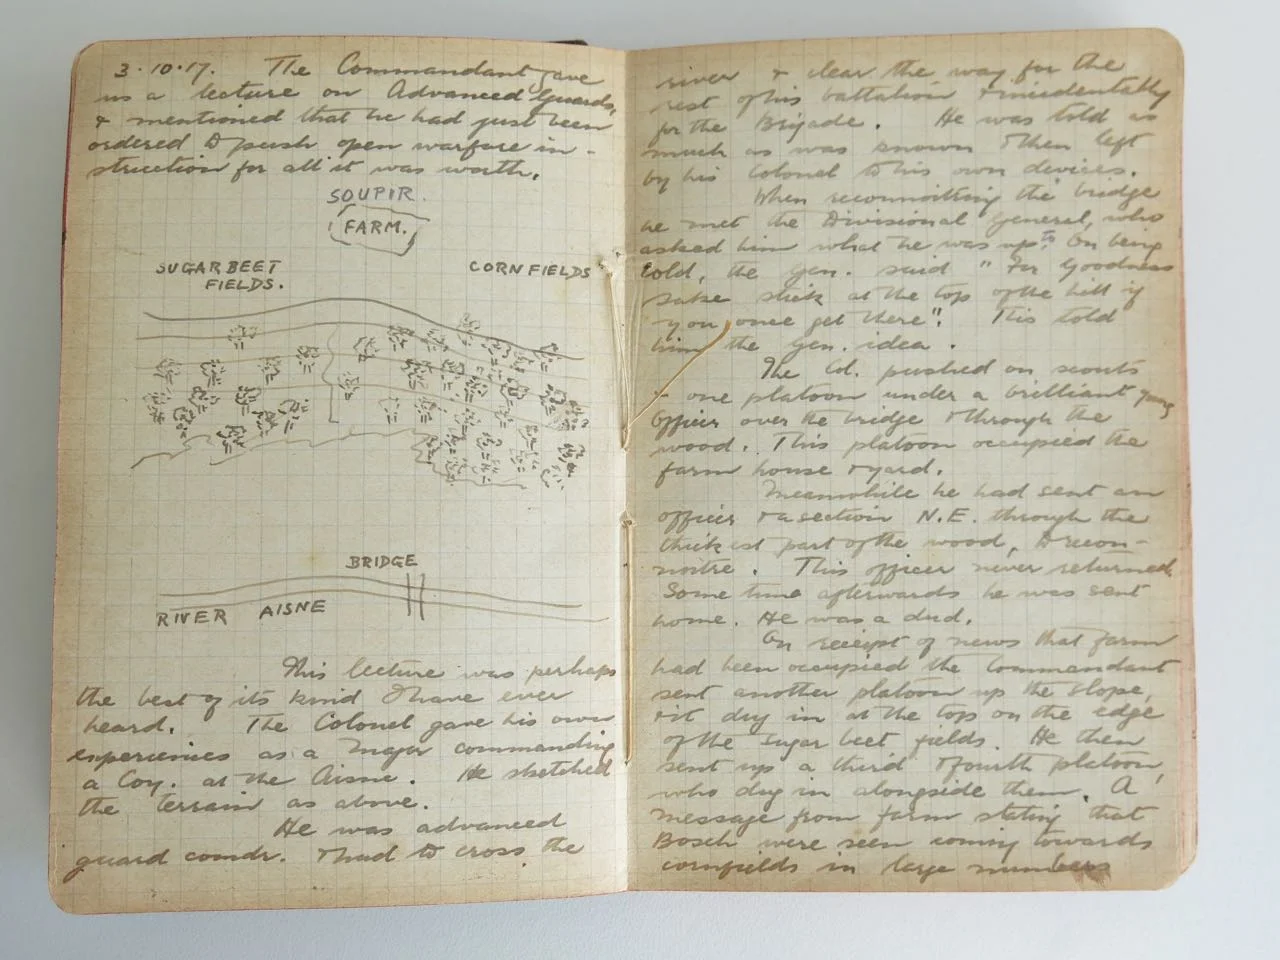 3.10.17. The Commandant gave
us a lecture on Advanced Guards,
& mentioned that he had just been
ordered to push open warfare in-
struction for all it was worth.
SOUPIR.
FARM.
SUGAR BEET
FIELDS.
CORNFIELDS
BRIDGE
RIVER AISNE
This lecture was perhaps
the best of its kind I have ever
heard. The Colonel gave his own
experiences as a Major commanding
a Coy. at the Aisne. He sketched
the terrain as above.
He was advanced
guard comdr. & had to cross the
river & clear the way for the
rest of his battalion & incidentally
for the Brigade. He was told as
much as was known & then left
by his Colonel to his own devices.
When reconnoitring the bridge
he met the Divisional General, who
asked him what he was up to. On being
told, the Gen. said "For Goodness
sake stick at the top of the hill if
you once get there". This told
him the Gen. idea.
The Col. pushed on scouts
& one platoon under a brilliant young
Officer over the bridge & through the
wood. This platoon occupied the
farm house & yard.
Meanwhile he had sent an
officer & a section N.E. through the
thickest part of the wood, to recon-
noitre. This officer never returned.
Some time afterwards he was sent
home. He was a dud.
On receipt of news that farm
had been occupied the Commandant
sent another platoon up the slope,
& it dug in at the top on the edge
of the sugar beet fields. He then
sent up a third & fourth platoon,
who dug in alongside them. A
message from farm stating that
Bosch were seen coming towards
cornfields in large numbers